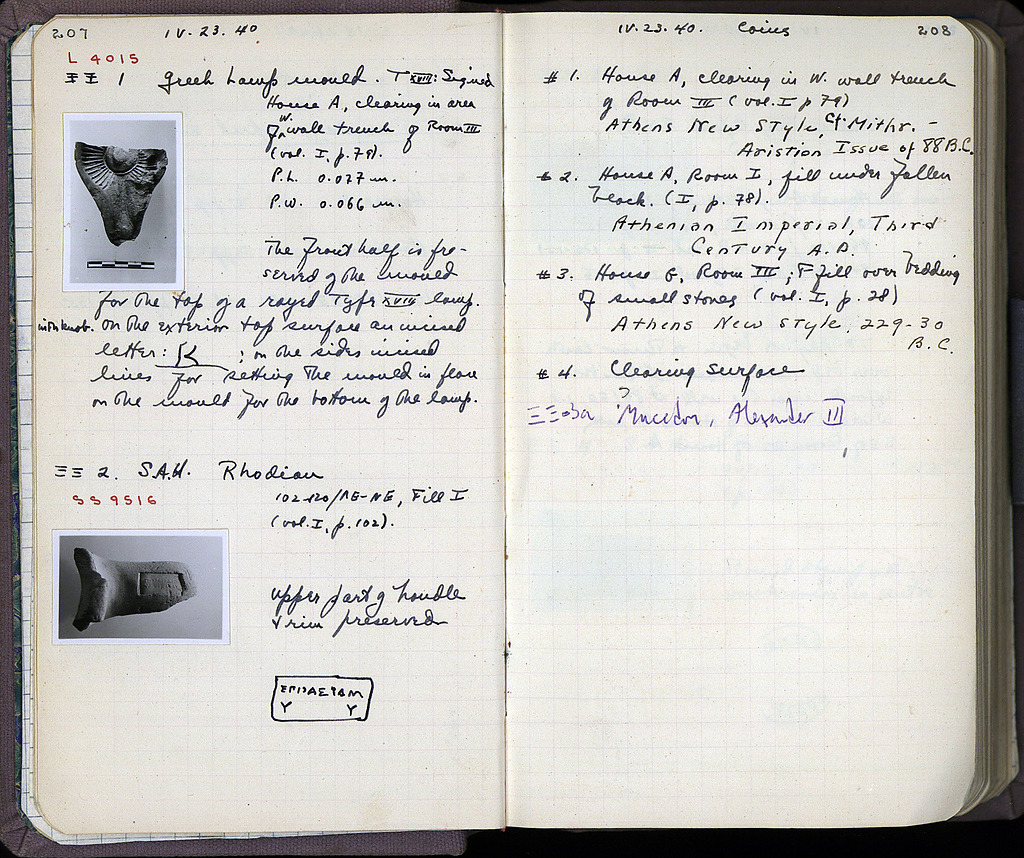 207 IV. 23. 40
L 4015
ΞΞ 1 Greek Lamp mould. T XVIII: Signed
House A, clearing in area
of W. wall trench of Room III
(vol. I, p. 79).
P.L. 0.077 m.
P.W. 0.066 m.
The front half is pre-
served of the mould
for the top of a rayed Type XVIII lamp.
with knob. on the exterior top surface an incised
letter: K ; on the sides incised
lines for setting the mould in place
on the mould for the bottom of the lamp.
ΞΞ 2. S.A.H. Rhodian
SS 9516
102-120/ΛΕ-ΝΕ, Fill I
(vol. I, p. 102).
upper part of handle
& rim preserved
Υ Υ
IV. 23. 40. Coins 208
# 1. House A, clearing in W. wall trench
of Room III (vol. I p 79)
Athens New Style, Cf. Mithr. -
Aristion Issue of 88 B.C.
# 2. House A, Room I, fill under fallen
block. (I, p. 78).
Athenian Imperial, Third
Century A.D.
# 3. House G, Room III; fill over bedding
of small stones (vol. I, p. 28)
Athens New Style, 229-30
B.C.
# 4. Clearing surface
Macedon, Alexander III